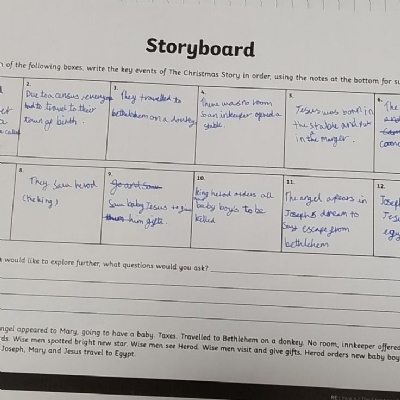 Storyboard
n of the following boxes, write the key events of The Christmas Story in order, using the notes at the bottom for su
2.
Due to a census, everyone
had to travel to their
town of birth.
3.
They travelled to
bethlehem on a donkey
4.
There was no room
an inkeeper opened a
stable.
5.
Jesus was born in
the stable and put
in the Manger.
6.
The
8.
They saw herod
(the king)
9.
go and saw
Saw baby Jesus + give
him gifts.
10.
king herod orders all
baby boys to be
killed
11.
The angel apears in
Josephs dream to
say escape from
bethlehem
12.
Josep
Jesu
egy
u would like to explore further, what questions would you ask?
ngel appeared to Mary, going to have a baby. Taxes. Travelled to Bethlehem on a donkey. No room, innkeeper offered
rds. Wise men spotted bright new star. Wise men see Herod. Wise men visit and give gifts. Herod orders new baby boy
Joseph, Mary and Jesus travel to Egypt.